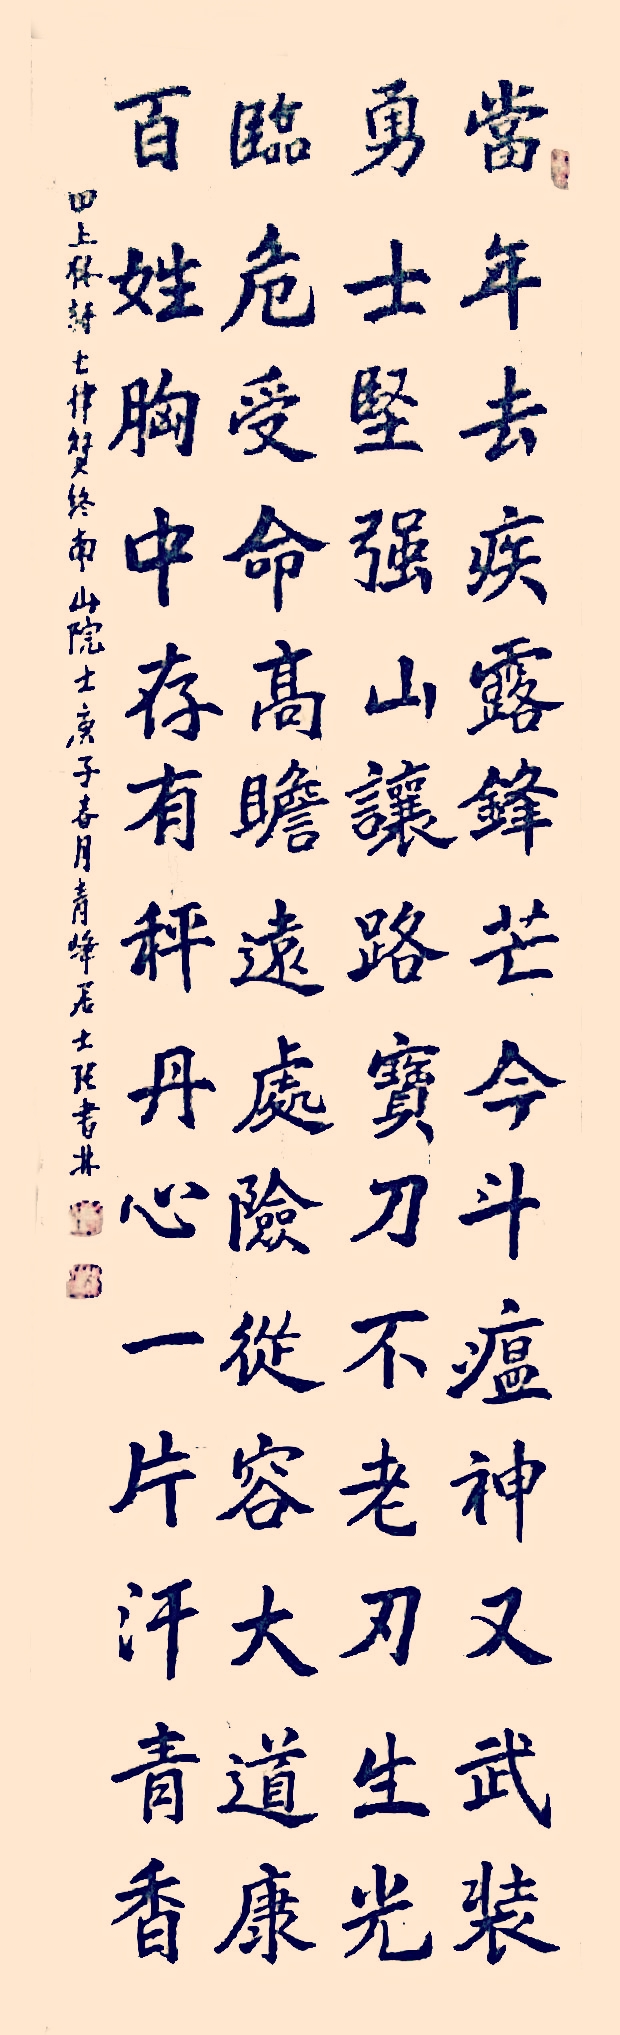 當年去疾露鋒芒今斗瘟神又武裝
勇士堅强山讓路寶刀不老刃生光
臨危受命高瞻遠處險從容大道康
百姓胸中存有秤丹心一片汗青香
田上林詩七律贊终南山院士庚子春月青峰居士張書林